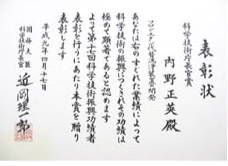 表彰状
科学技術庁長官賞
内野正英殿
あなたは右のすぐれた業績により
科学技術の振興につくされその功績は
極めて顕著であると認めます
よって第十七回科学技術振興功績者
表彰を行うにあたり本賞を贈り
表彰します
平成九年四月十七日
国務大臣
科学技術庁長官
近岡理一郎